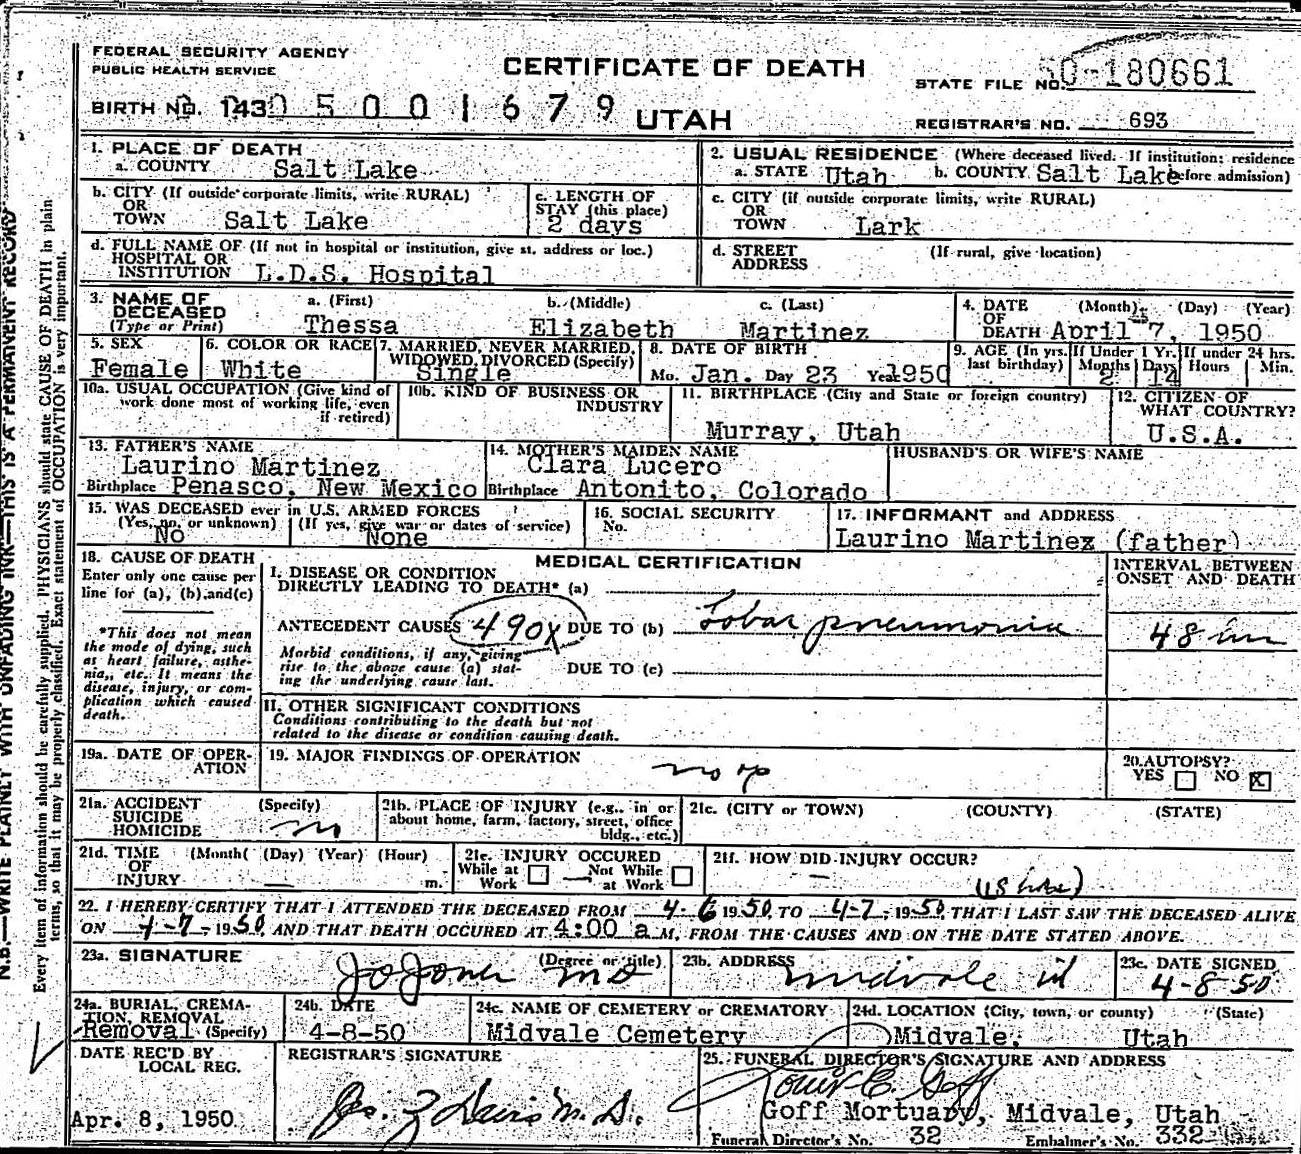 FEDERAL SECURITY AGENCY
PUBLIC HEALTH SERVICE
CERTIFICATE OF DEATH
STATE FILE NO. 50-180661
BIRTH NO. 1430 5 0 0 1 6 7 9
UTAH
REGISTRAR'S NO. 693
1. PLACE OF DEATH
a. COUNTY Salt Lake
2. USUAL RESIDENCE (Where deceased lived. If institution; residence before admission)
a. STATE Utah b. COUNTY Salt Lake
b. CITY (If outside corporate limits, write RURAL)
OR
TOWN Salt Lake
c. LENGTH OF
STAY (this place)
2 days
c. CITY (if outside corporate limits, write RURAL)
OR
TOWN Lark
d. FULL NAME OF (If not in hospital or institution, give st. address or loc.)
HOSPITAL OR
INSTITUTION L.D.S. Hospital
d. STREET (If rural, give location)
ADDRESS
3. NAME OF
DECEASED
(Type or Print)
a. (First) b. (Middle) c. (Last)
Thessa Elizabeth Martinez
4. DATE (Month) (Day) (Year)
OF
DEATH April 7, 1950
5. SEX
Female
6. COLOR OR RACE
White
7. MARRIED, NEVER MARRIED,
WIDOWED, DIVORCED (Specify)
Single
8. DATE OF BIRTH
Mo. Jan. Day 23 Year 1950
9. AGE (In yrs. last birthday)
If Under 1 Yr. Months 2 Days 14
If under 24 hrs. Hours Min.
10a. USUAL OCCUPATION (Give kind of
work done most of working life, even
if retired)
10b. KIND OF BUSINESS OR
INDUSTRY
11. BIRTHPLACE (City and State or foreign country)
Murray, Utah
12. CITIZEN OF
WHAT COUNTRY?
U.S.A.
13. FATHER'S NAME
Laurino Martinez
Birthplace Penasco, New Mexico
14. MOTHER'S MAIDEN NAME
Clara Lucero
Birthplace Antonito, Colorado
HUSBAND'S OR WIFE'S NAME
15. WAS DECEASED ever in U.S. ARMED FORCES
(Yes, no, or unknown) (If yes, give war or dates of service)
No None
16. SOCIAL SECURITY
No.
17. INFORMANT and ADDRESS
Laurino Martinez (father)
18. CAUSE OF DEATH
Enter only one cause per
line for (a), (b), and (c)
*This does not mean
the mode of dying, such
as heart failure, asthe-
nia, etc. It means the
disease, injury, or com-
plication which caused
death.
MEDICAL CERTIFICATION
I. DISEASE OR CONDITION
DIRECTLY LEADING TO DEATH* (a)
ANTECEDENT CAUSES 490X DUE TO (b) Lobar pneumonia
Morbid conditions, if any, giving
rise to the above cause (a) stat-
ing the underlying cause last.
DUE TO (c)
INTERVAL BETWEEN
ONSET AND DEATH
48
II. OTHER SIGNIFICANT CONDITIONS
Conditions contributing to the death but not
related to the disease or condition causing death.
19a. DATE OF OPER-
ATION
19. MAJOR FINDINGS OF OPERATION
no op
20. AUTOPSY?
YES NO X
21a. ACCIDENT (Specify)
SUICIDE
HOMICIDE
21b. PLACE OF INJURY (e.g., in or
about home, farm, factory, street, office
bldg., etc.)
21c. (CITY or TOWN) (COUNTY) (STATE)
21d. TIME (Month( (Day) (Year) (Hour)
OF
INJURY m.
21e. INJURY OCCURED
While at Work Not While at Work
21f. HOW DID INJURY OCCUR?
22. I HEREBY CERTIFY THAT I ATTENDED THE DECEASED FROM 4-6 1950, TO 4-7, 1950, THAT I LAST SAW THE DECEASED ALIVE
ON 4-7, 1950, AND THAT DEATH OCCURED AT 4:00 a M. FROM THE CAUSES AND ON THE DATE STATED ABOVE.
23a. SIGNATURE (Degree or title)
Jo Jones MD
23b. ADDRESS
Midvale Ut
23c. DATE SIGNED
4-8-50
24a. BURIAL, CREMA-
TION, REMOVAL
Removal (Specify)
24b. DATE
4-8-50
24c. NAME OF CEMETERY or CREMATORY
Midvale Cemetery
24d. LOCATION (City, town, or county) (State)
Midvale, Utah
DATE REC'D BY
LOCAL REG.
Apr. 8, 1950
REGISTRAR'S SIGNATURE
25. FUNERAL DIRECTOR'S SIGNATURE AND ADDRESS
Louis E. Goff
Goff Mortuary, Midvale, Utah
Funeral Director's No. 32 Embalmer's No. 332
N.B.—WRITE PLAINLY WITH UNFADING INK—THIS IS A PERMANENT RECORD
Every item of information should be carefully supplied. PHYSICIANS should state CAUSE OF DEATH in plain
terms, so that it may be properly classified. Exact statement of OCCUPATION is very important.